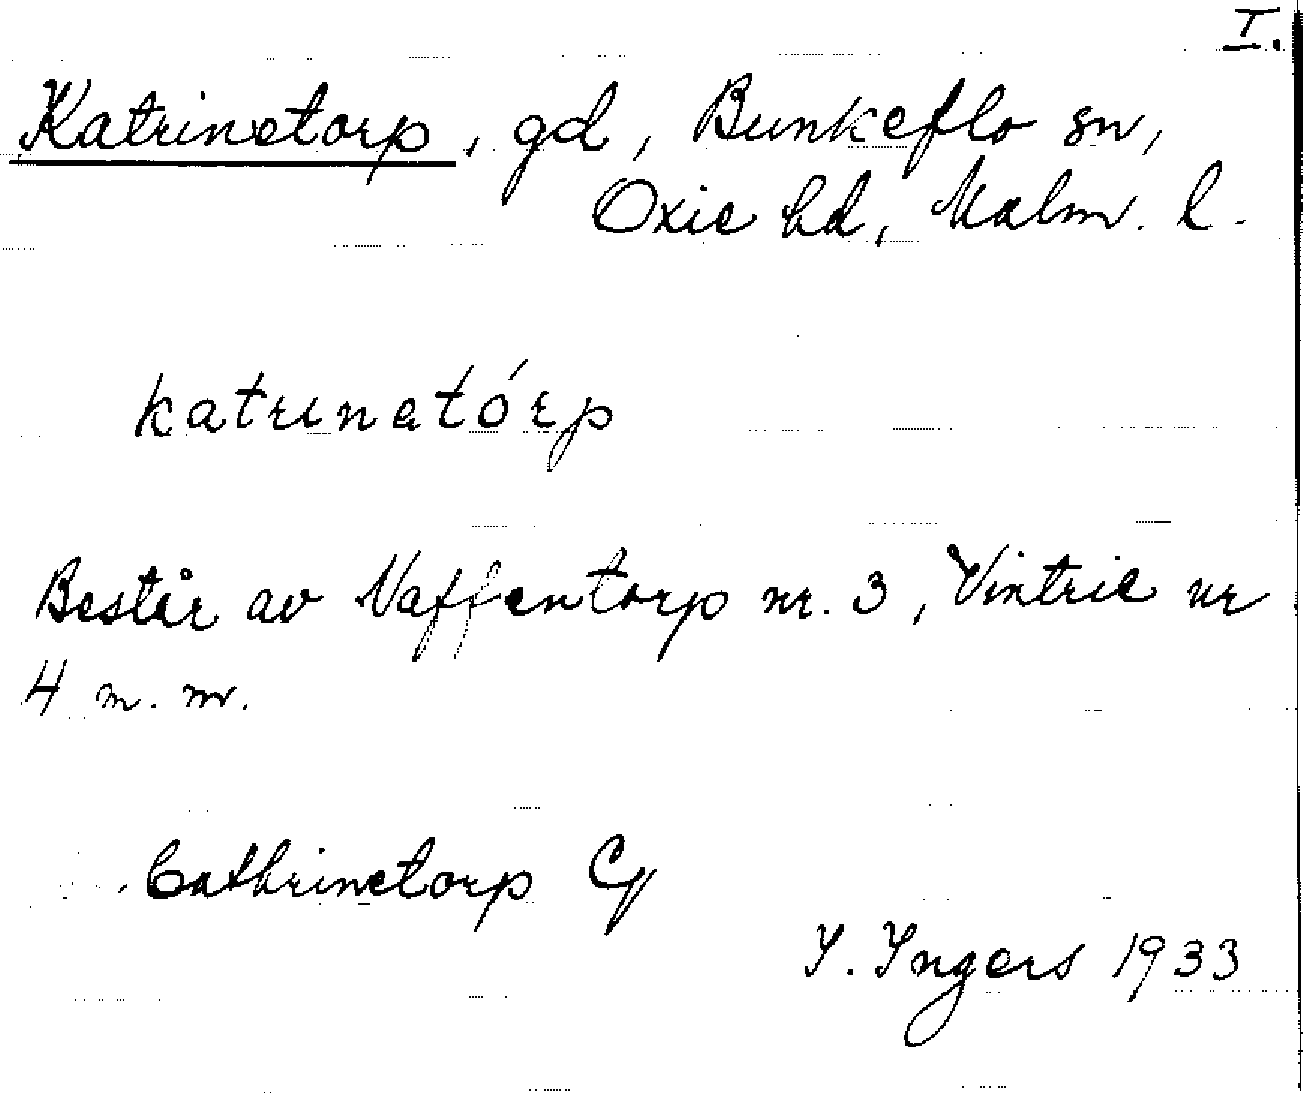 I.
Katrinetorp, gd, Bunkeflo sn,
Oxie hd, Malm. l.
katrinetórp
Består av Naffentorp nr. 3, Vintrie nr
4 m. m.
Cathrinetorp Cy
I. Ingers 1933